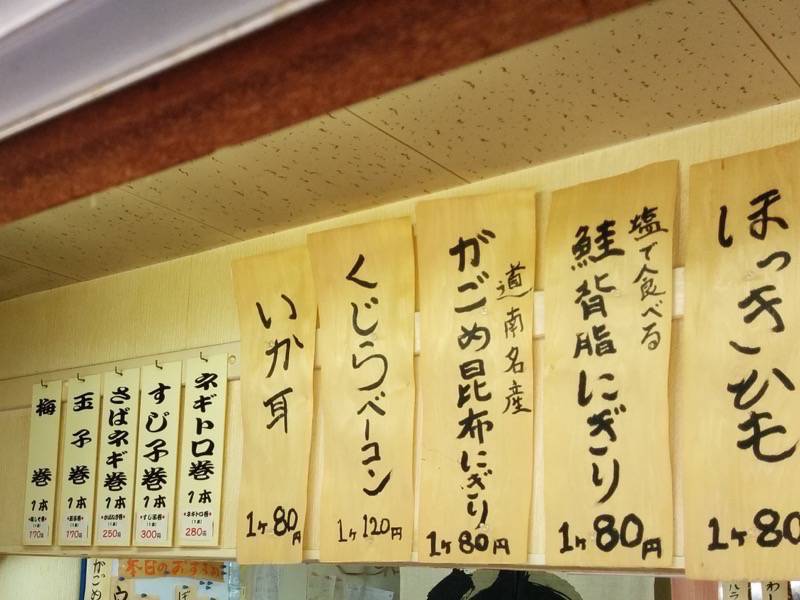 ほっきひも
1ヶ80
塩で食べる
鮭背脂にぎり
1ヶ80円
道南名産
がごめ昆布にぎり
1ヶ80円
くじらベーコン
1ヶ120円
いか耳
1ヶ80円
ネギトロ巻
1本
ネギトロ巻
280円
すじ子巻
1本
すじ子巻
300円
さばネギ巻
1本
250円
玉子巻
1本
170円
梅巻
1本
170円
本日のおすすめ
がごめ